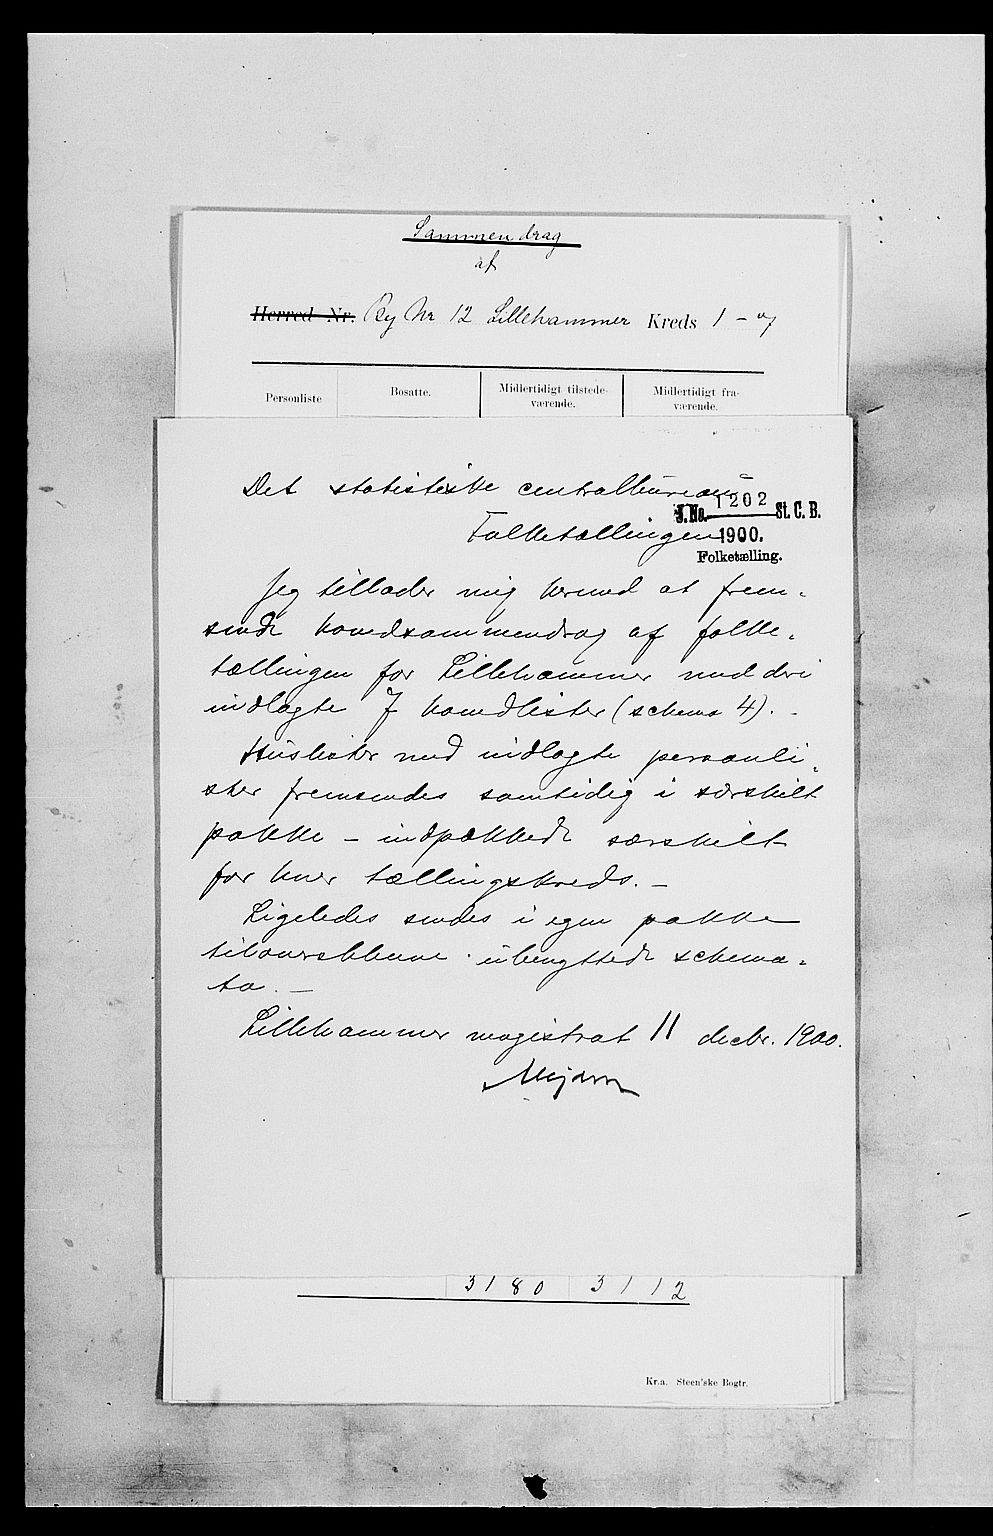 Sammendrag
af
Herred Nr. By Nr 12 Lillehammer Kreds 1 -
Personliste Bosatte. Midlertidigt tilstede-
værende. Midlertidigt fra-
værende.
Det statistiske centralbureau
J. No. 1202 St. C. B.
Folketællingen 1900.
Folketælling.
Jeg tillader mig hermed at frem-
sende hovedsammendrag af folke-
tællingen for Lillehammer med deri
indlagte 7 hovedlister (schema 4). -
Huslister med indlagte personli-
ster fremsendes samtidig i særskilt
pakke - indpakkede særskilt
for hver tællingskreds. -
Ligeledes sendes i egen pakke
tiloversblevne ubenyttede schema-
ta. -
Lillehammer magistrat 11 decbr. 1900.
3180 3112
Kr.a. Steen'ske Bogtr.